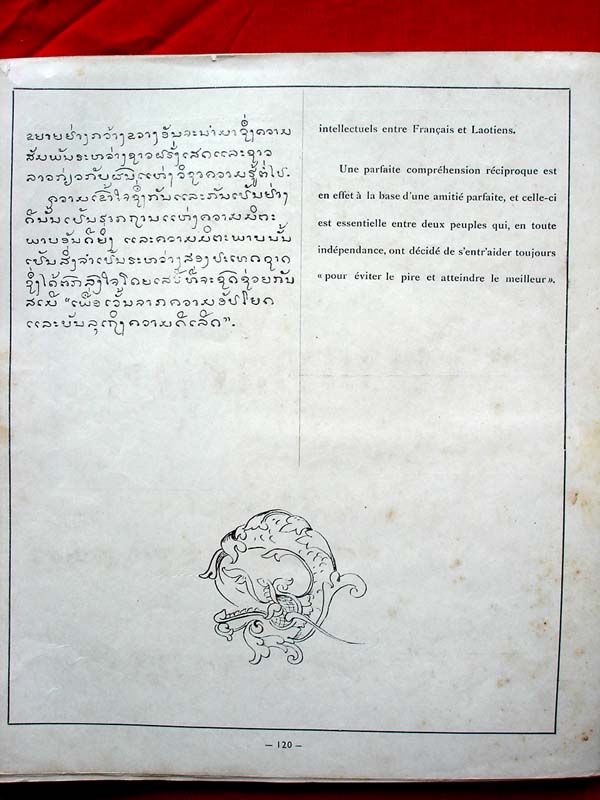 ຂຍາຍຢ່າງກວ້າງຂວາງອັນຈະນຳມາຊຶ່ງຄວາມ
ສັມພັນຣະຫວ່າງຊາວຝຣັ່ງເສດແລະຊາວ
ລາວກ່ຽວກັບ ແຫ່ງວິຊາຄວາມຮູ້ຕໍ່ໄປ.
ຄວາມເຂົ້າໃຈຊຶ່ງກັນແລະກັນເປັນຢ່າງ
ດີນັ້ນເປັນຮາກຖານແຫ່ງຄວາມມິຕະ
ພາບອັນດີຍິ່ງ ແລະຄວາມມິຕະພາບນັ້ນ
ເປັນສິ່ງຈຳເປັນຣະຫວ່າງສອງປະເທດຊາດ
ຊຶ່ງໄດ້ຕົກລົງໃຈໂດຍເສຣີທີ່ຈະຊົດຊ່ວຍກັນ
ສເມີ “ເພື່ອເວັ້ນຈາກຄວາມອັປໂຍດ
ແລະບັນລຸເຖິງຄວາມດີເລີດ”.
intellectuels entre Français et Laotiens.
Une parfaite compréhension réciproque est
en effet à la base d'une amitié parfaite, et celle-ci
est essentielle entre deux peuples qui, en toute
indépendance, ont décidé de s'entr'aider toujours
« pour éviter le pire et atteindre le meilleur ».
— 120 —